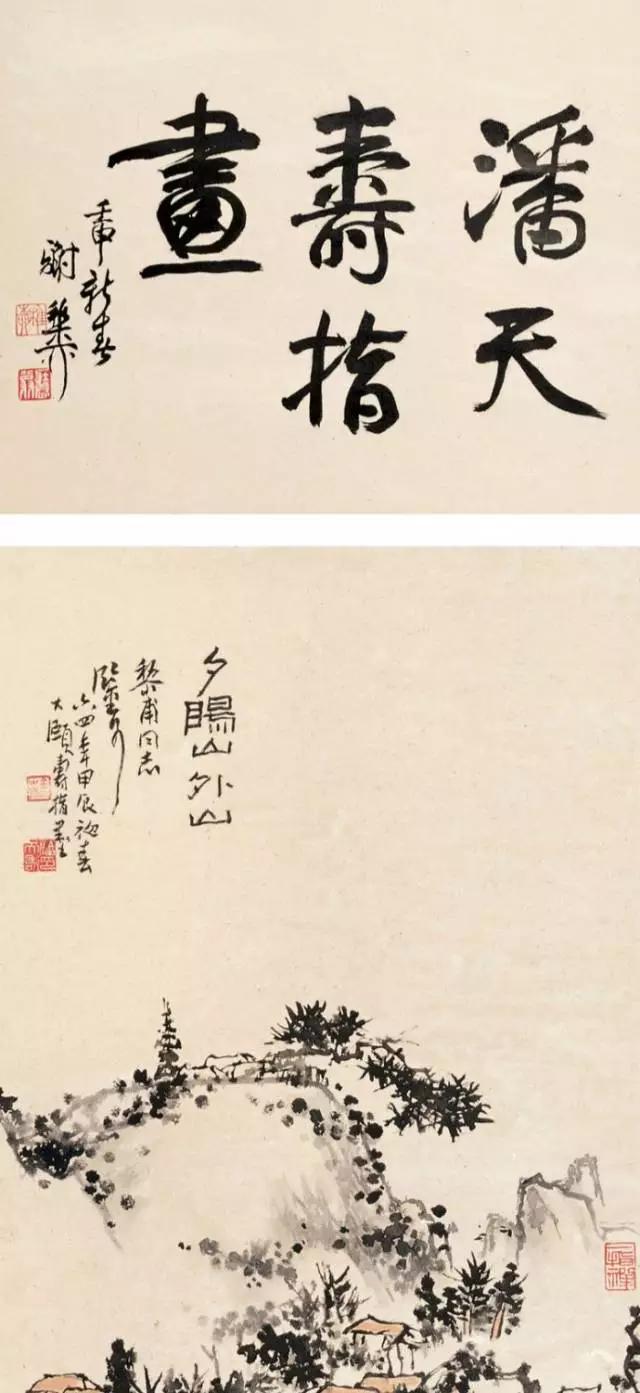 潘天
壽指
畫
壬申新春
謝稚柳
夕暘山外山
黎甫同志
六四年甲辰初春
大頤壽指墨